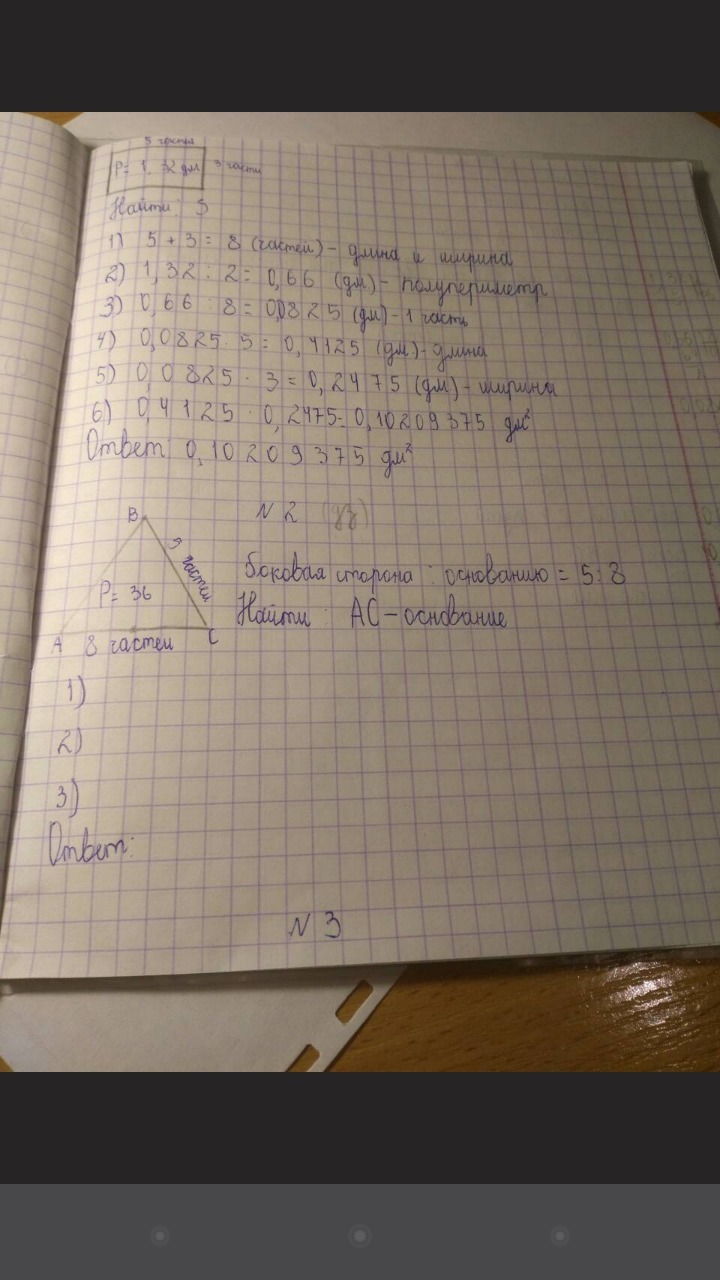 5 частей
P= 1,32 дм 3 части
Найти: S
1) 5 + 3 = 8 (частей) - длина и ширина
2) 1,32 : 2 = 0,66 (дм) - полупериметр
3) 0,66 : 8 = 0,0825 (дм) - 1 часть
4) 0,0825 · 5 = 0,4125 (дм) - длина
5) 0,0825 · 3 = 0,2475 (дм) - ширина
6) 0,4125 · 0,2475 = 0,10209375 дм²
Ответ: 0,10209375 дм²
N 2 (дз)
B
5 частей
Боковая сторона : основанию = 5:8
P= 36
Найти: AC - основание
A 8 частей C
1)
2)
3)
Ответ:
N 3